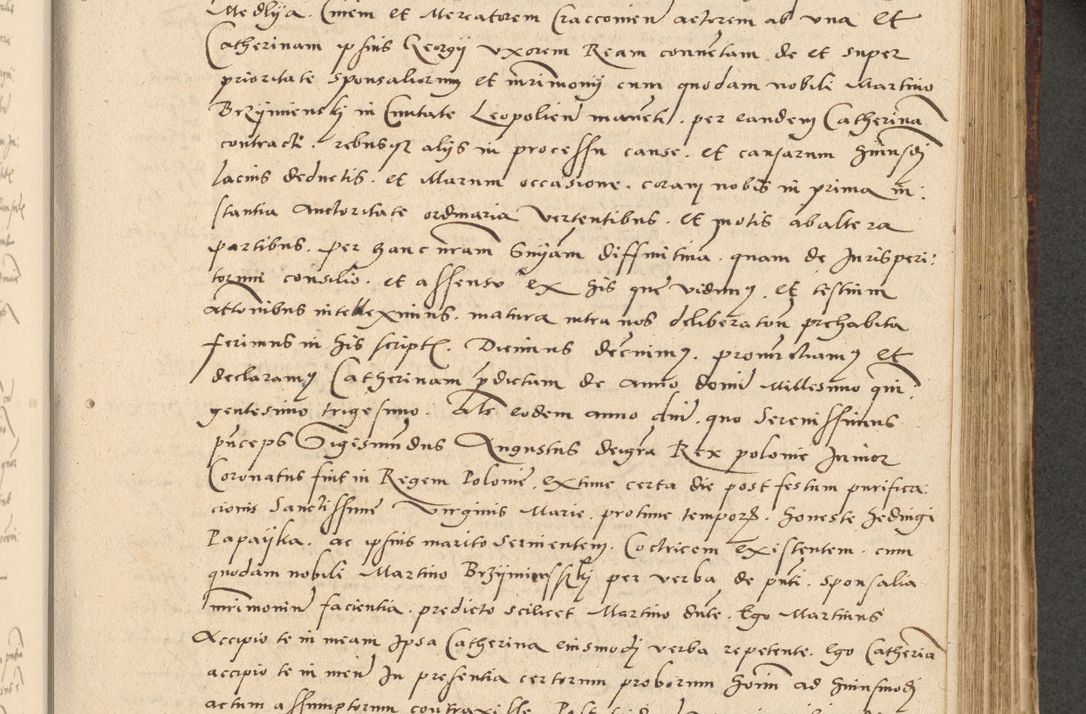 Medlÿa. Civem et Mercatorem Cracovien actorem ab una et
Catherinam ipsius Georgÿ uxorem Ream conventam de et super
prioritate sponsaliorum et mrimonÿ cum quodam nobili Martino
Brzÿmienskj in Civitate Leopolien manen̄te. per eandem Catherina
contracti. rebusqz alÿs in processu cause. et causarum huiusdj
lacius deductis. et Illarum occasione. coram nobis in prima in:
stantia Auctoritate ordinaria vertentibus. et motis ab altera
partibus. per hanc nram Sniam diffinitiva. quam de Jurisperi:
torum consilio. et assensu ex his que vidimus. et testium
Attonibus intelleximus. matura intra nos deliberation prehabita
ferimus in his scriptis. Dicimus decnimus. pronunctiamus et
declaramus Catherinam pdictam de Anno domi Millesimo quin:
gentesimo trigesimo. Als eodem anno dni. quo Serenissimus
pnceps Sigesmundus Augustus dei gra Rex polonie Junior
Coronatus fuit in Regem Polonie. extunc certa die post festum purifica:
cionis Sanctissime Virginis Marie. protunc temporis. honeste hedvigi
Papaÿka. ac ipsius marito servientem. Coctricem existentem. cum
quodam nobili Martino Brzÿmiensskÿ per verba de pnti. sponsalia
mrimonium facientia. predicto scilicet Martino dnte. Ego Martinus
Accipio te in meam Ipsa Catherina eiusmodj verba repetente. Ego Catheria
accipio te in meū In presentia certorum proborum hoim ad huiusmodj
actum assumptorum contraxisse. Post